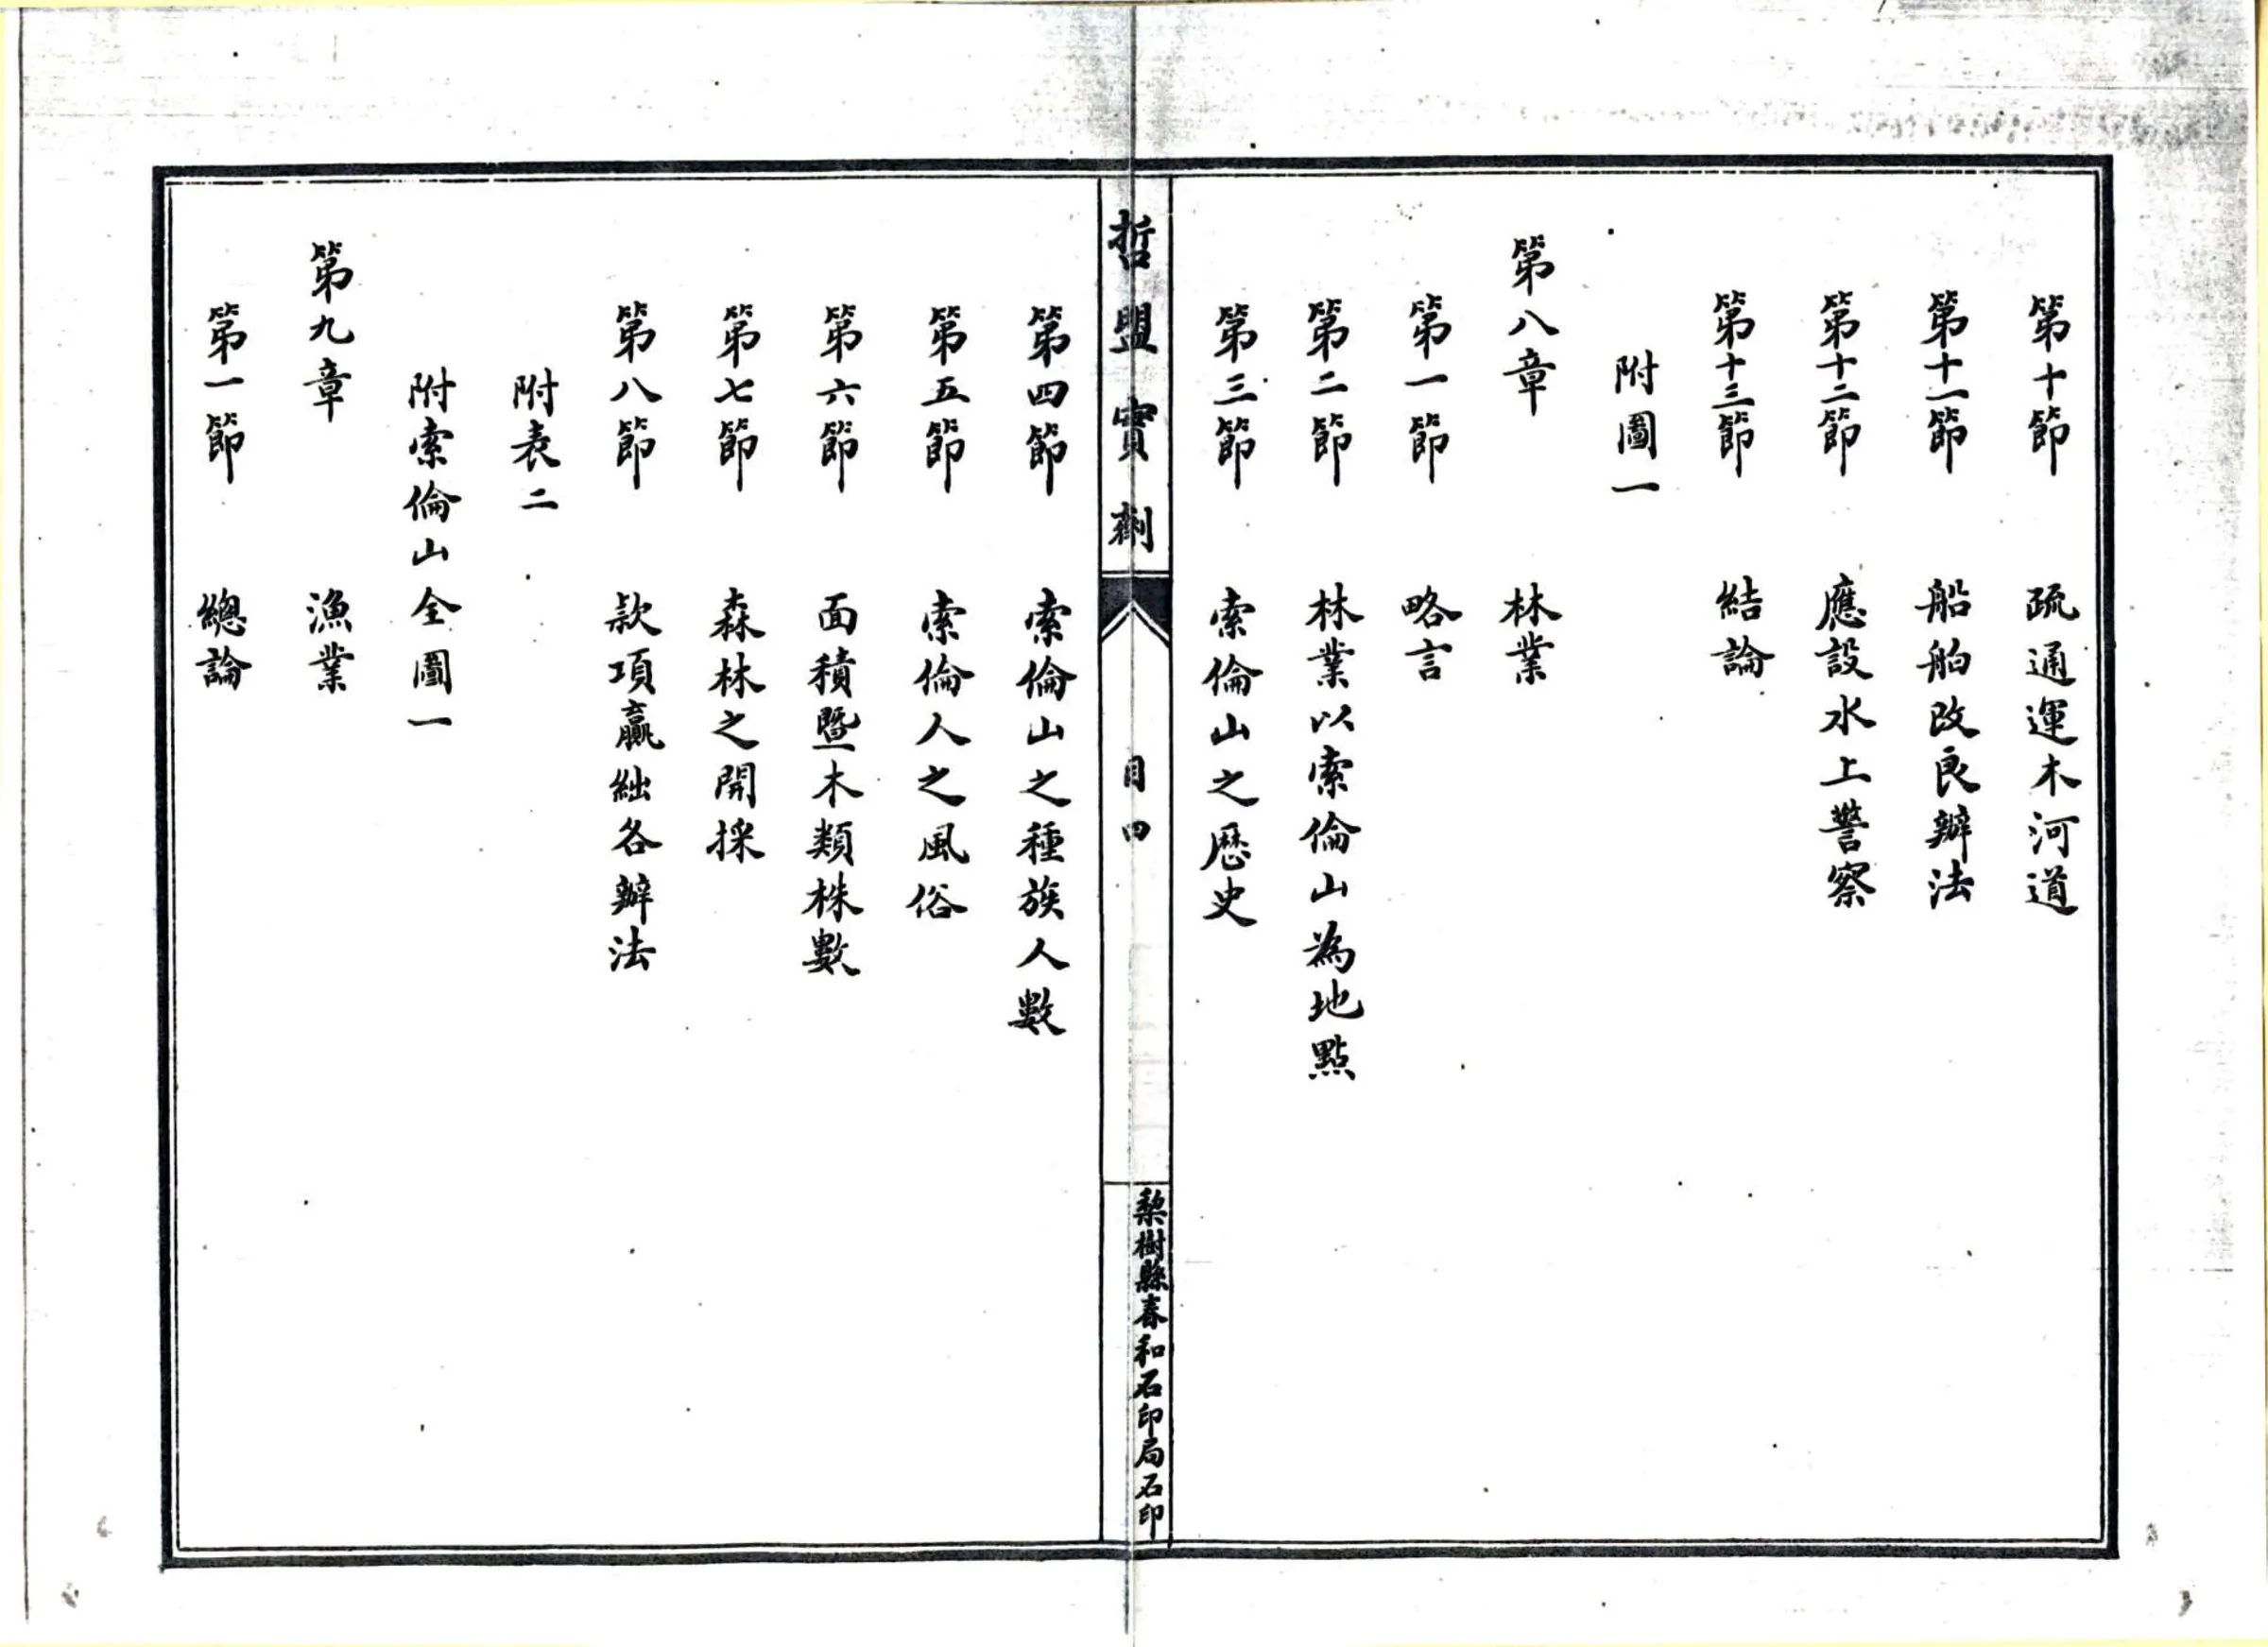 第十節　疏通運木河道
第十一節　船舶改良辦法
第十二節　應設水上警察
第十三節　結論
附圖一
第八章　林業
第一節　略言
第二節　林業以索倫山為地點
第三節　索倫山之歷史
哲盟實劑　目四　梨樹縣春和石印局石印
第四節　索倫山之種族人數
第五節　索倫人之風俗
第六節　面積暨木類株數
第七節　森林之開採
第八節　款項贏絀各辦法
附表二
附索倫山全圖一
第九章　漁業
第一節　總論